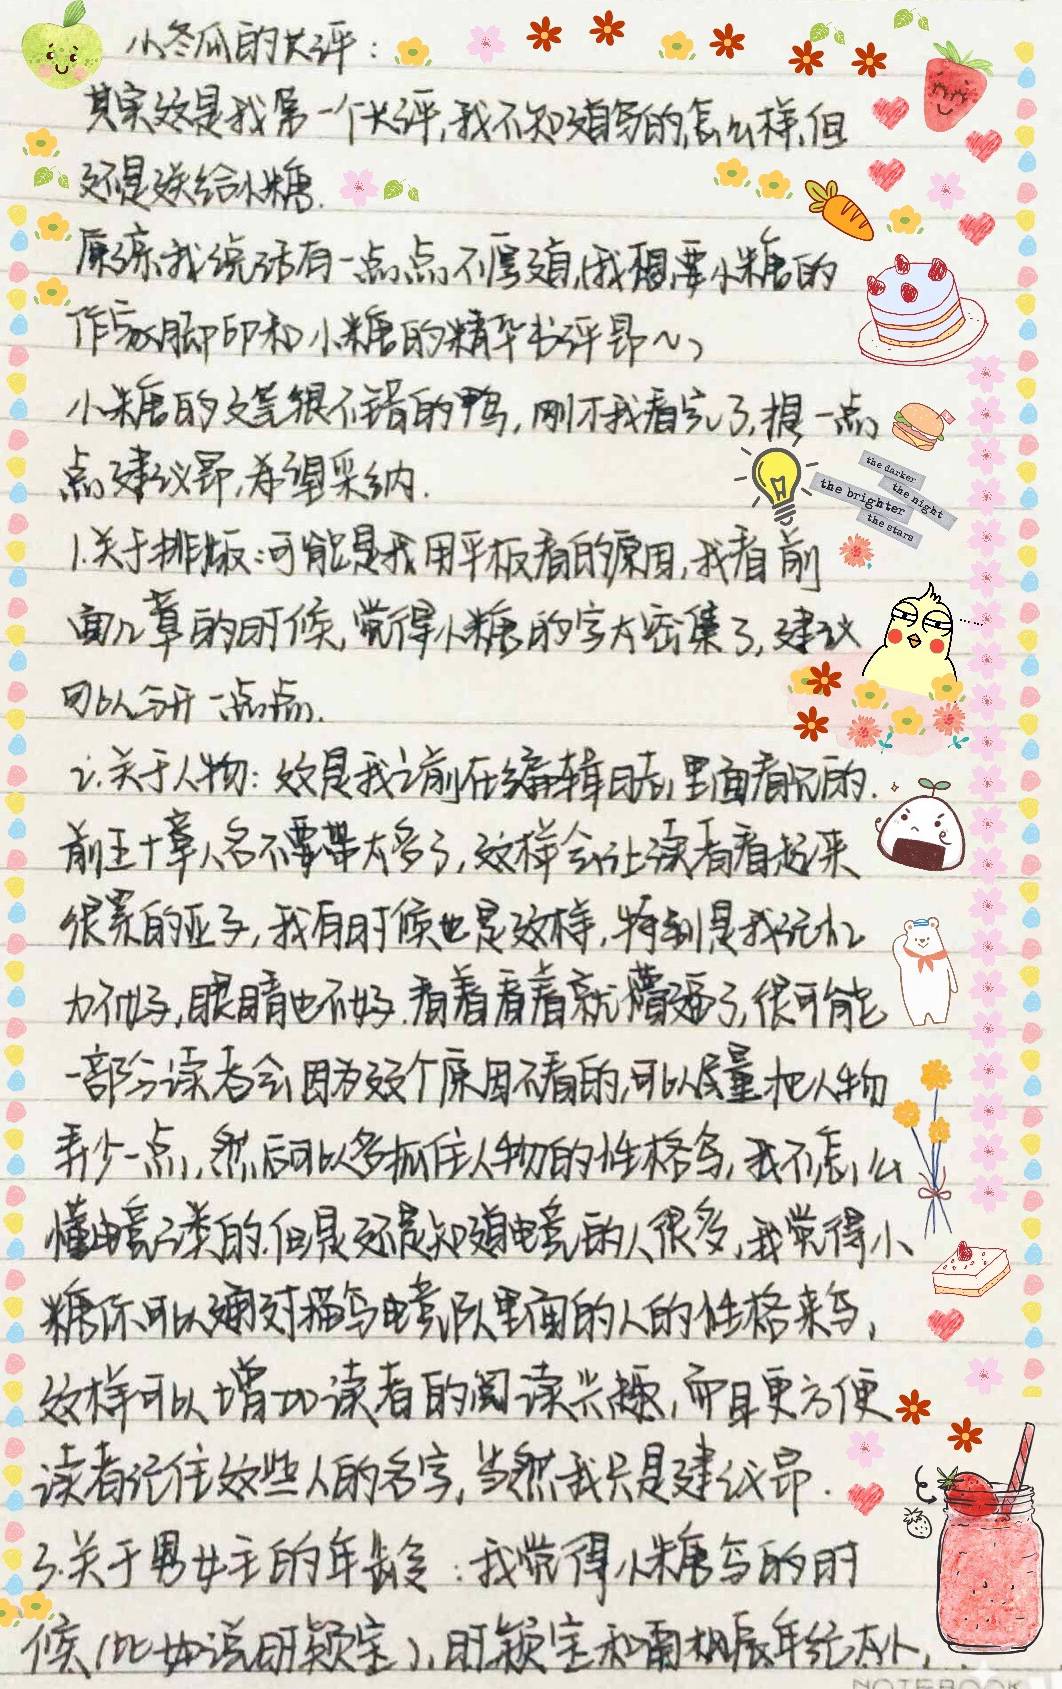 小冬瓜的长评：
其实这是我第一个长评,我不知道写的怎么样,但
还是送给小糖.
原谅我说话有一点点不厚道,我想要小糖的
作家脚印和小糖的精华书评昂~~
小糖的文笔很不错的鸭,刚才我看完了,提一点
点建议昂,希望采纳.
1.关于排版:可能是我用平板看的原因,我看前
面几章的时候,觉得小糖的字太密集了,建议
可以分开一点点.
the darker
the night
the brighter
the stars
2.关于人物：这是我之前在编辑日志里面看见的.
前五十章人名不要带太多了,这样会让读者看起来
很累的亚子,我有时候也是这样,特别是我记忆
力不好,眼睛也不好.看着看着就懵逼了,很可能
一部分读者会因为这个原因不看的,可以尽量把人物
弄少一点,然后可以多抓住人物的性格写,我不怎么
懂电竞之类的.但是还是知道电竞的人很多,我觉得小
糖你可以通过描写电竞队里面的人的性格来写,
这样可以增加读者的阅读兴趣,而且更方便
读者记住这些人的名字,当然我只是建议昂.
3.关于男女主的年龄：我觉得小糖写的时
候(比如说时颖宝),时颖宝和南枫辰年纪太小,
NOTEBOOK